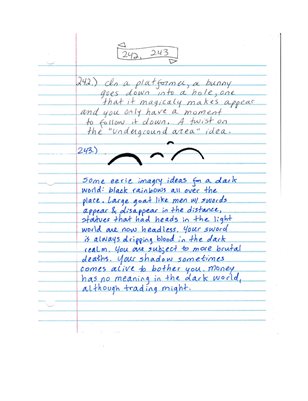 242, 243
242.) In a platformer, a bunny
goes down into a hole, one
that it magicaly makes appear
and you only have a moment
to follow it down. A twist on
the "underground area" idea.
243.)
Some eerie imagry ideas for a dark
world: black rainbows all over the
place. Large goat like men w/ swords
appear & disappear in the distance,
statues that had heads in the light
world are now headless. Your sword
is always dripping blood in the dark
realm. You are subject to more brutal
deaths. Your shadow sometimes
comes alive to bother you. Money
has no meaning in the dark world,
although trading might.